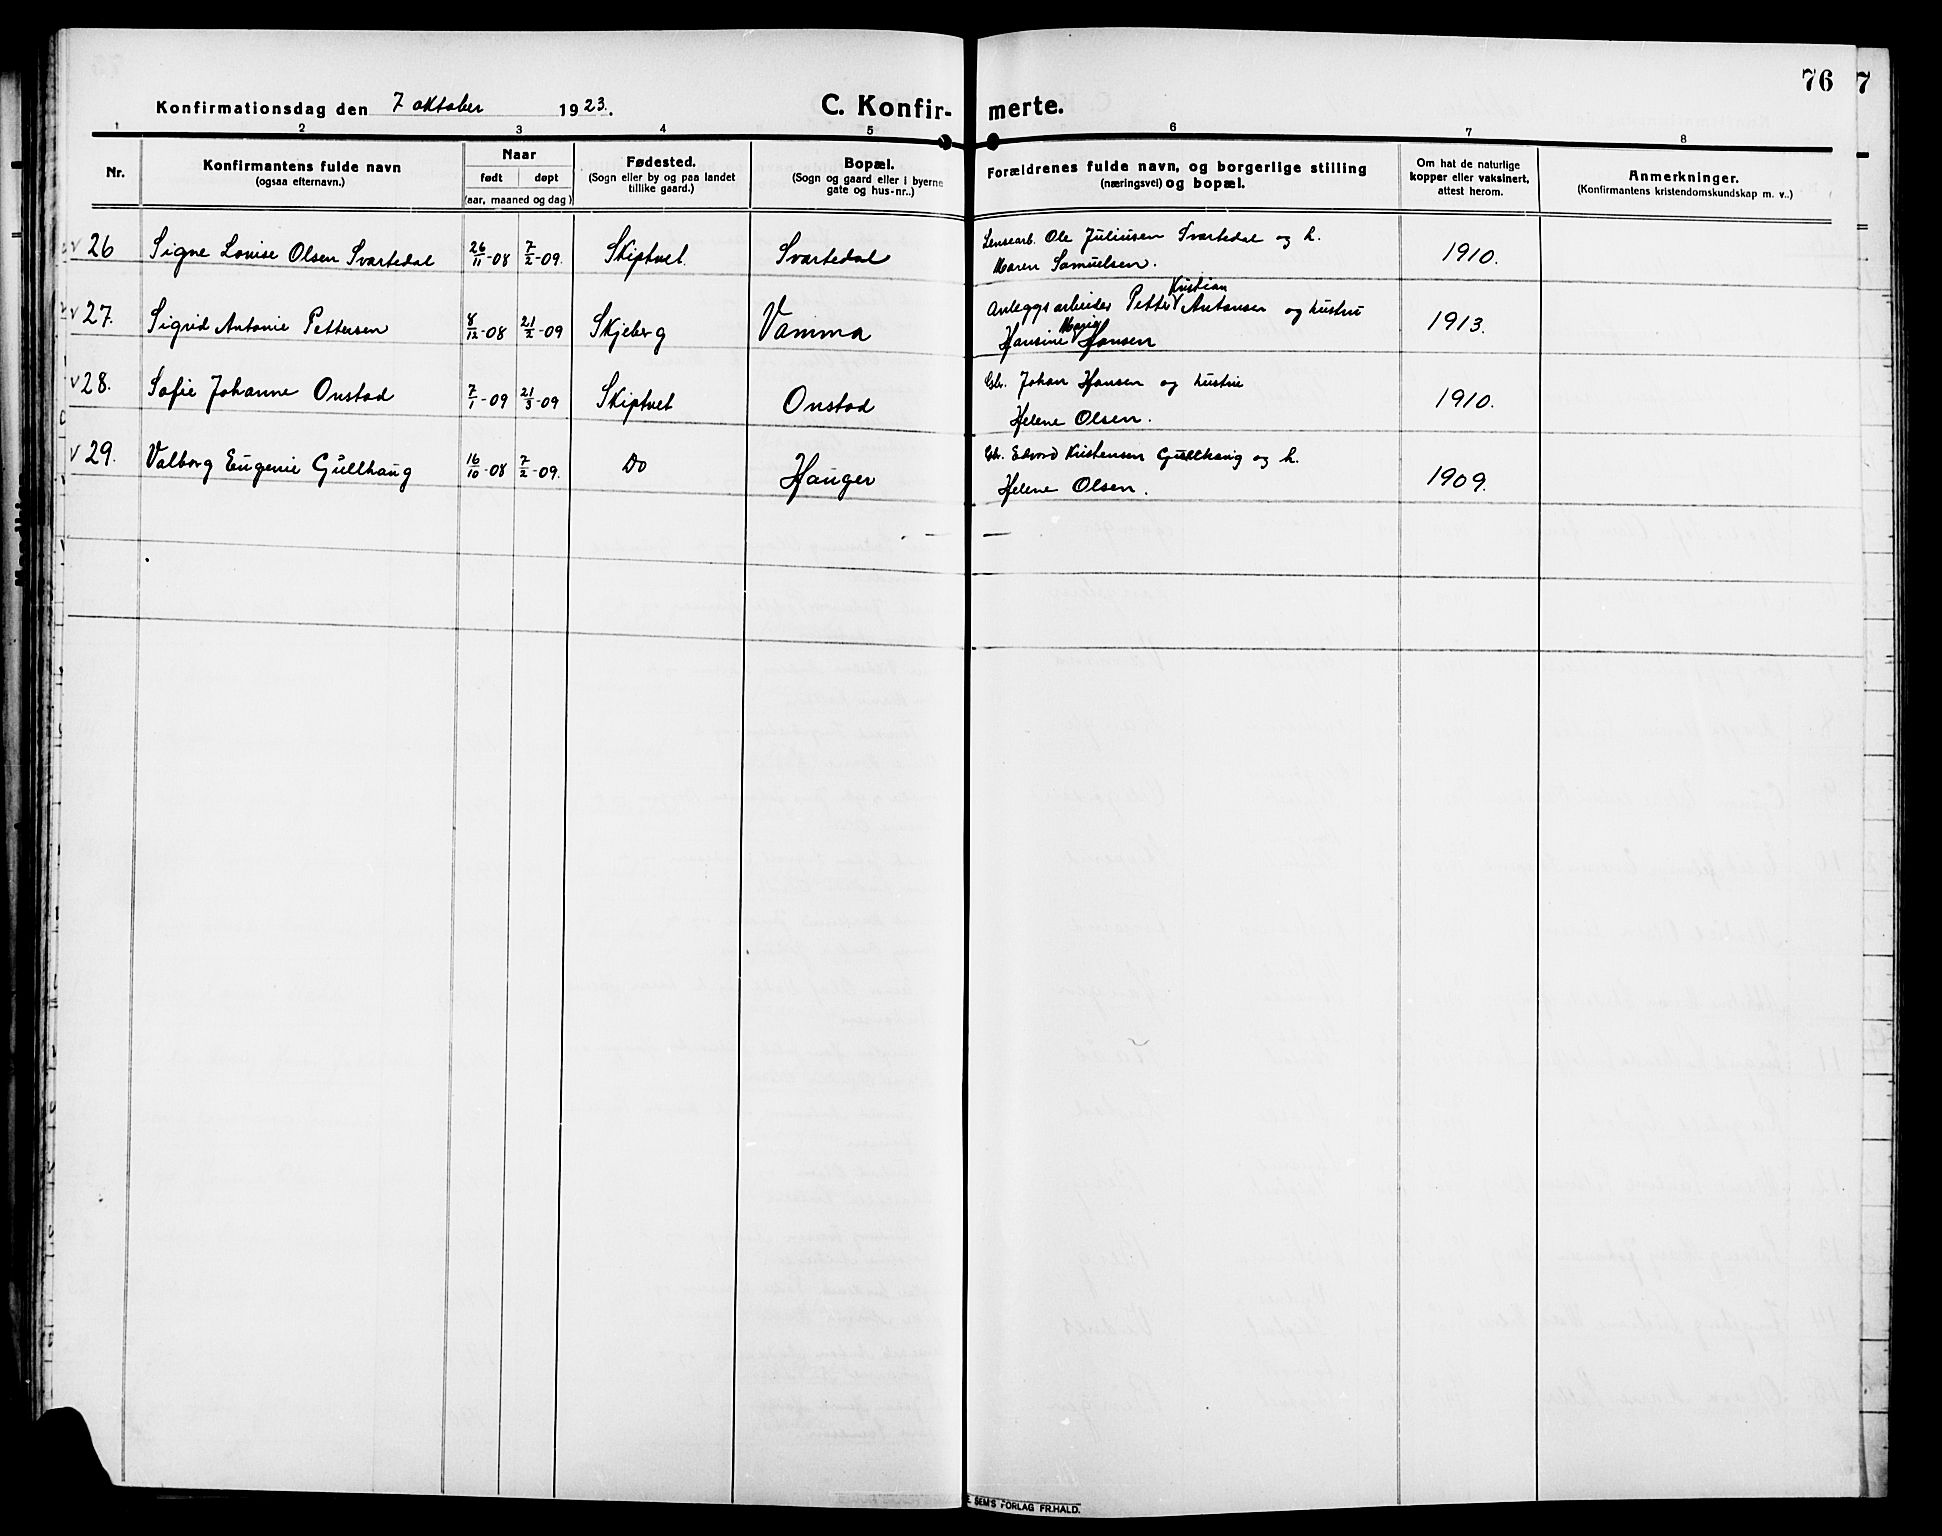 76
7
Konfirmationsdag den 7 oktober 1923.
C. Konfir- merte.
1 2 3 4 5 6 7 8
Nr.
Konfirmantens fulde navn
(ogsaa efternavn.)
Naar
født døpt
(aar, maaned og dag)
Fødested.
(Sogn eller by og paa landet
tillike gaard.)
Bopæl.
(Sogn og gaard eller i byerne
gate og hus-nr..)
Forældrenes fulde navn, og borgerlige stilling
(næringsvei) og bopæl.
Om hat de naturlige
kopper eller vaksinert,
attest herom.
Anmerkninger.
(Konfirmantens kristendomskundskap m. v..)
v 26 Signe Lovise Olsen Svartedal 26/11-08 7/2-09. Skiptvet. Svartedal Lensearb. Ole Juliusen Svartedal og h. 1910.
Maren Samuelsen.
v 27. Sigrid Antonie Pettersen 8/12-08 21/2-09 Skjeberg Vamma Anleggsarbeider Petter Kristian Antonsen og hustru 1913.
Hansine Maria Hansen
v 28. Sofie Johanne Onstad 7/1-09 21/3-09 Skiptvet Onstad Gbr. Johan Hansen og hustru 1910.
Helene Olsen.
v 29. Valborg Eugenie Gullhaug 16/10-08 7/2-09. Do Hauger Gbr. Edvard Kristensen Gullhaug og h. 1909.
Helene Olsen.
E. SEM'S FORLAG FR.HALD.